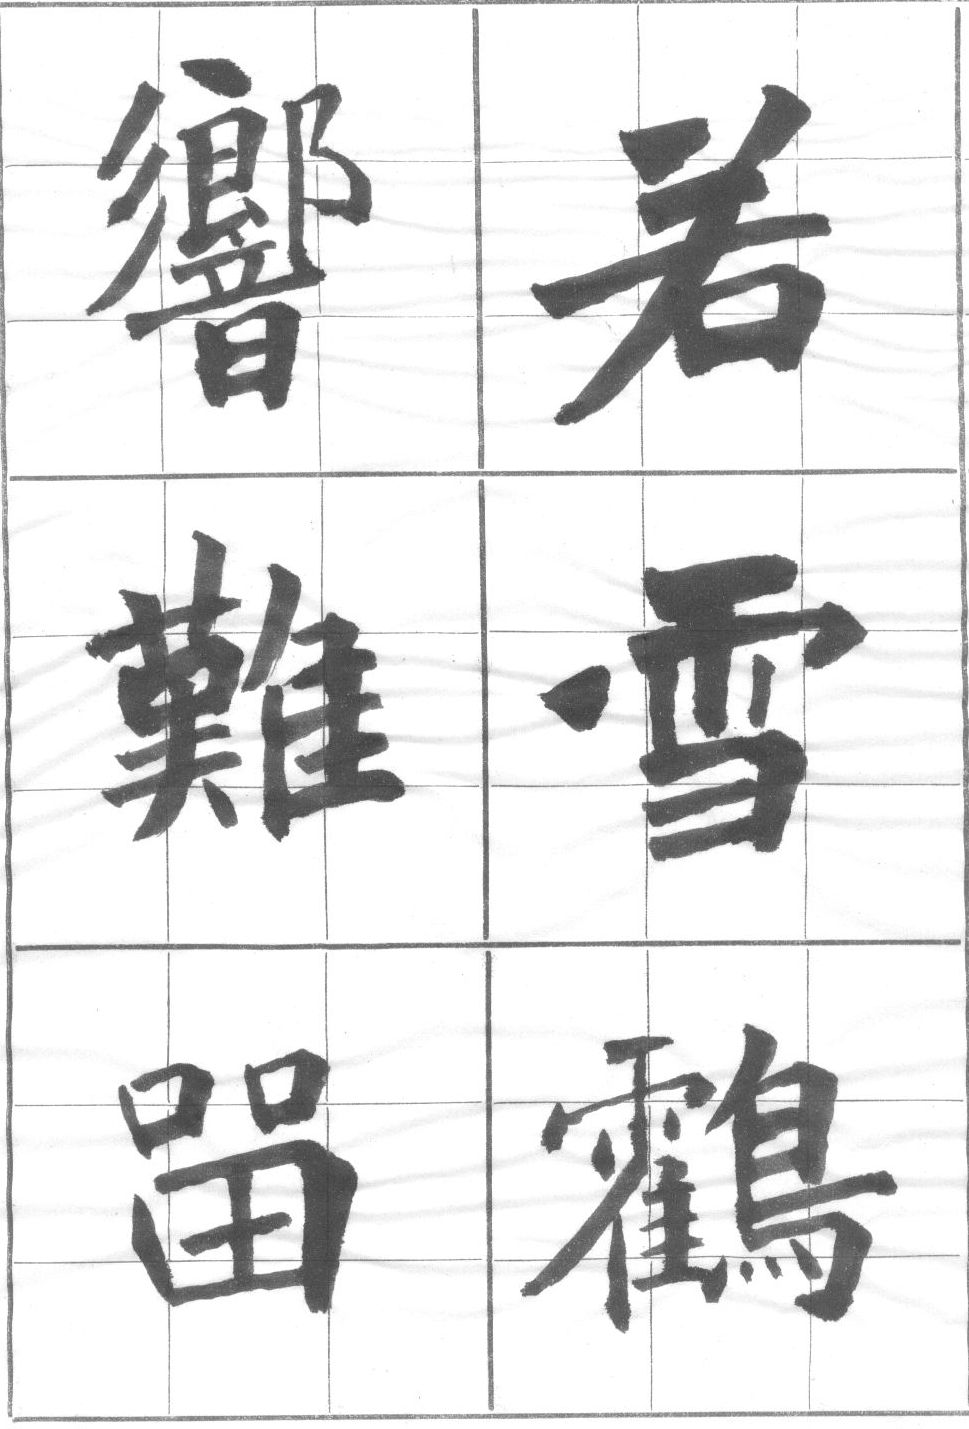 若雪鶴
響難畱